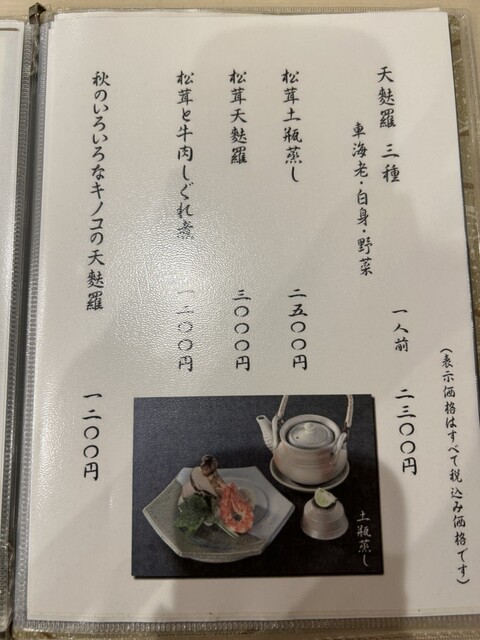 (表示価格はすべて税込み価格です)
天麩羅 三種 一人前 二三〇〇円
車海老・白身・野菜
松茸土瓶蒸し 二五〇〇円
松茸天麩羅 三〇〇〇円
松茸と牛肉しぐれ煮 一二〇〇円
秋のいろいろなキノコの天麩羅 一二〇〇円
土瓶蒸し